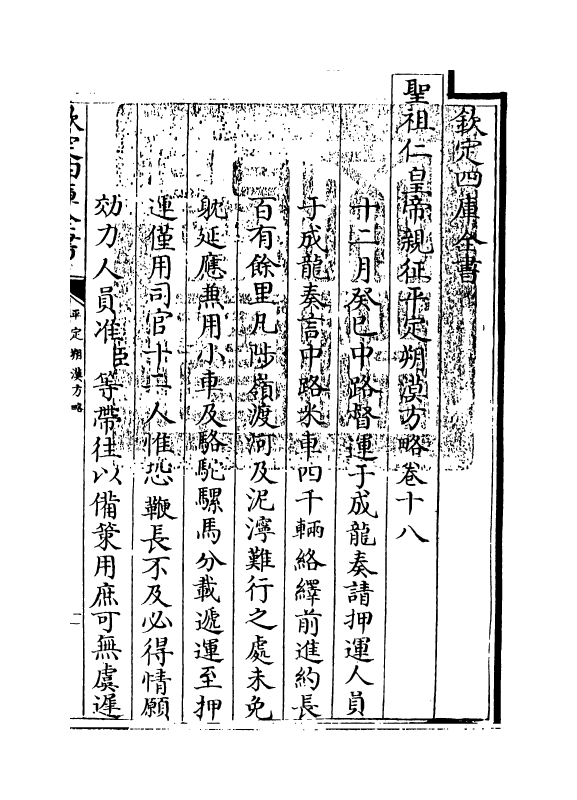 欽定四庫全書
聖祖仁皇帝親征平定朔漠方略卷十八
十二月癸巳中路督運于成龍奏請押運人員
于成龍奏言中路米車四千輛絡繹前進約長
百有餘里凡陟嶺渡河及泥濘難行之處未免
躭延應兼用小車及駱駝騾馬分載遞運至押
運僅用司官十二人惟恐鞭長不及必得情願
効力人員准臣等帶往以備策用庶可無虞遲
欽定四庫全書
平定朔漠方略